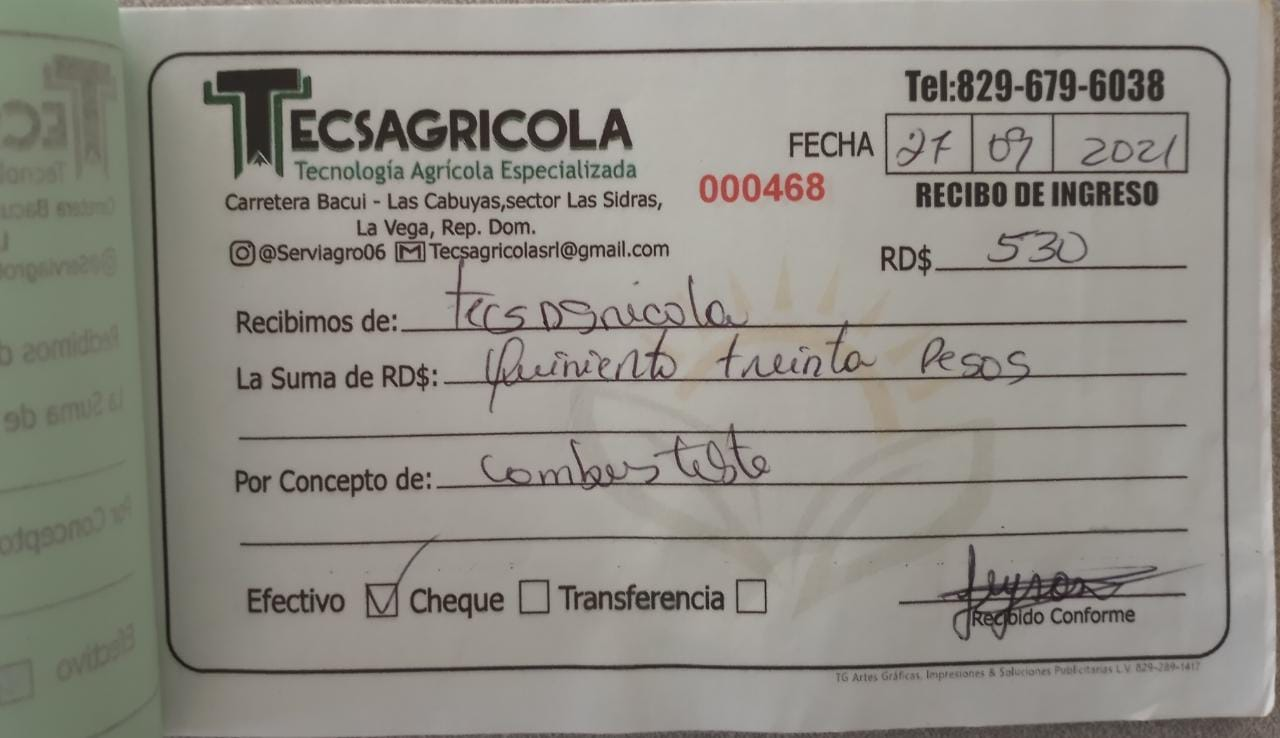 TECSAGRICOLA
Tecnología Agrícola Especializada
Carretera Bacui - Las Cabuyas,sector Las Sidras,
La Vega, Rep. Dom.
@Serviagro06 Tecsagricolasrl@gmail.com
Tel:829-679-6038
FECHA 27 09 2021
000468
RECIBO DE INGRESO
RD$ 530
Recibimos de: Tecsagricola
La Suma de RD$: Quiniento treinta Pesos
Por Concepto de:
Efectivo Cheque Transferencia
Recibido Conforme
TG Artes Gráficas, Impresiones & Soluciones Publicitarias L.V. 829-289-1417